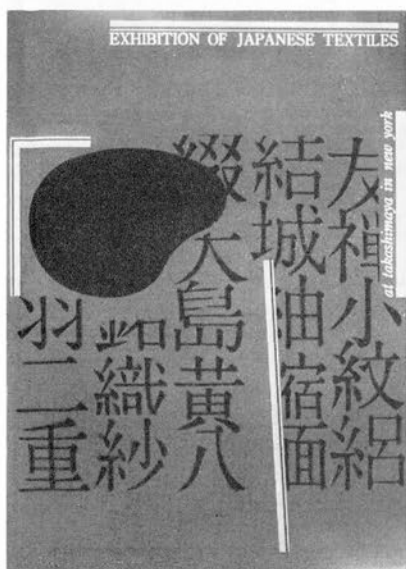 EXHIBITION OF JAPANESE TEXTILES
at takashimaya in new york
友禪小紋絽
結城紬縮緬
綴大島黄八
織紗
羽二重